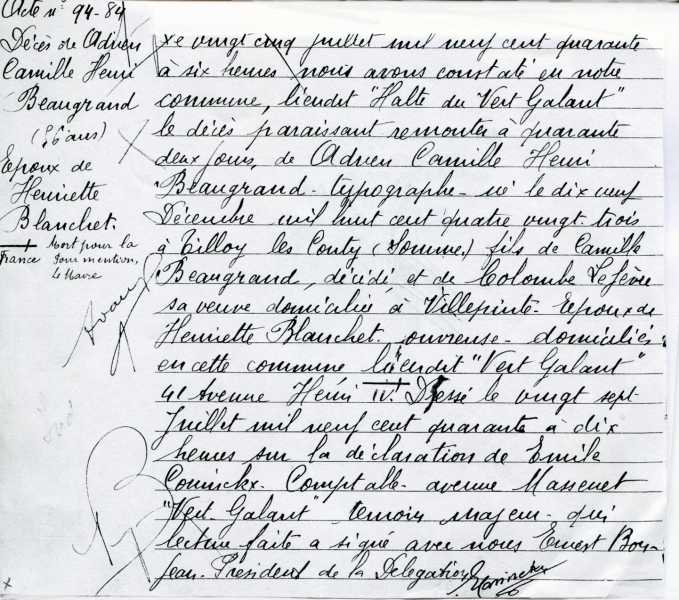 Acte n° 94-84
Décès de Adrien
Camille Henri
Beaugrand
(56 ans)
Epoux de
Henriette
Blanchet.
Mort pour la
France Pour mention,
Le Maire
Le vingt cinq juillet mil neuf cent quarante
à six heures nous avons constaté en notre
commune, lieudit "Halte du Vert Galant"
le décès paraissant remonter à quarante
deux jours, de Adrien Camille Henri
Beaugrand - typographe - né le dix neuf
Décembre mil huit cent quatre vingt-trois
à Tilloy les Conty (Somme) fils de Camille
Beaugrand, décédé et de Colombe Lefèvre
sa veuve domiciliée à Villepinte - Epoux de
Henriette Blanchet ouvreuse - domiciliés
en cette commune lieudit "Vert Galant"
41 Avenue Henri IV. Dressé le vingt sept
Juillet mil neuf cent quarante à dix
heures sur la déclaration de Emile
Coninckx - Comptable - avenue Massenet
"Vert-Galant" témoin majeur - qui
lecture faite a signé avec nous Ernest Bon-
jean - Président de la Délégation